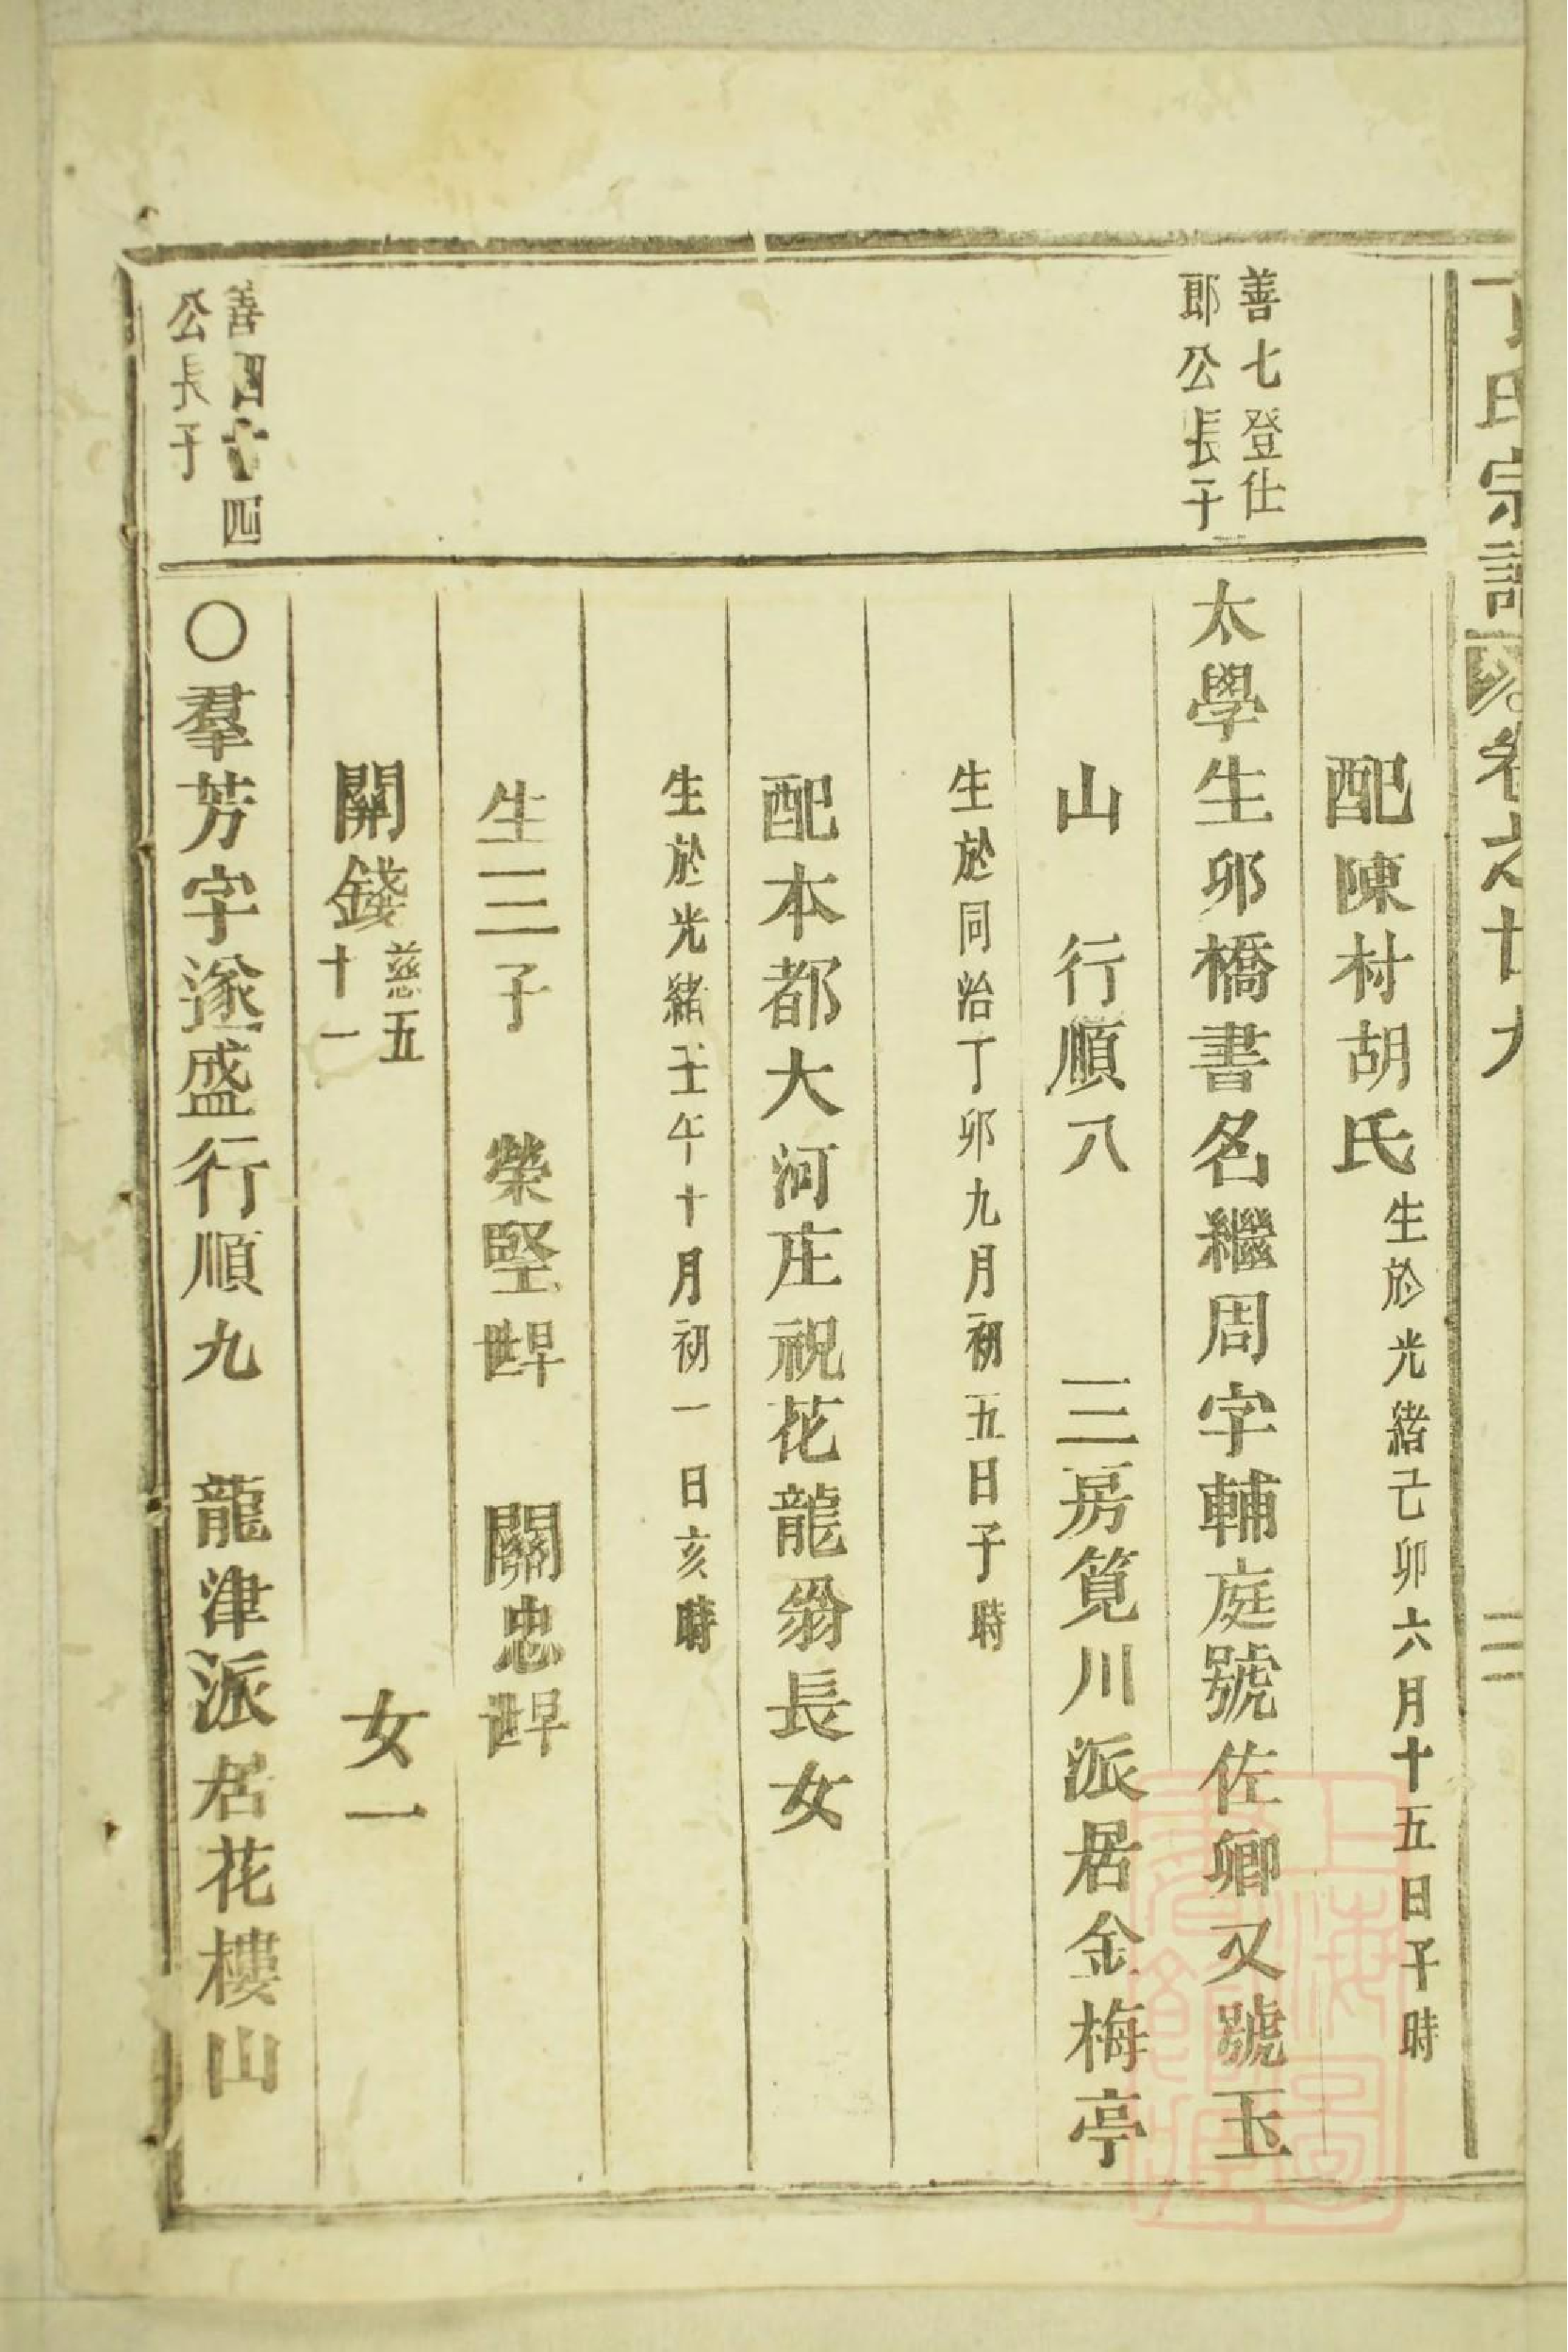 氏宗譜 卷之廿九 二
配陳村胡氏生於光緒己卯六月十五日子時
善七登仕
郎公長子
太學生卯橋書名繼周字輔庭號佐卿又號玉
山 行順八 三房筧川派居金梅亭
生於同治丁卯九月初五日子時
配本都大河庄祝花龍翁長女
生於光緒壬午十月初一日亥時
生三子 榮堅 關忠
開錢慈五十一 女一
善四十四
公長子
〇羣芳字遂盛行順九 龍津派居花樓山